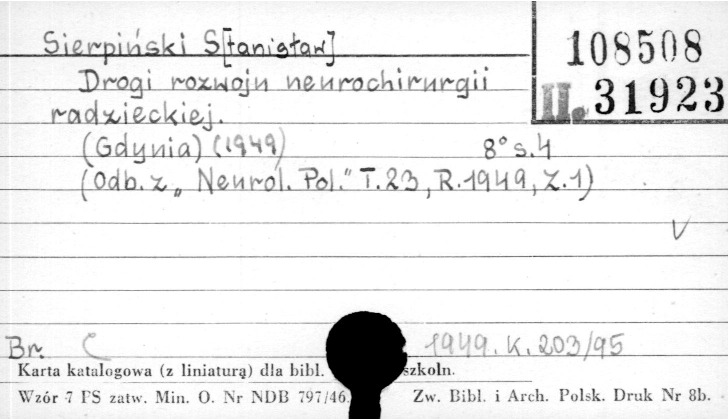 Sierpiński S[tanisław]
108508
II. 31923
Drogi rozwoju neurochirurgii
radzieckiej.
(Gdynia) (1949) 8° s.4
(Odb. z „Neurol. Pol." T.23, R.1949, Z.1)
V
Br. C 1949. K. 203/95
Karta katalogowa (z liniaturą) dla bibl. szkoln.
Wzór 7 PS zatw. Min. O. Nr NDB 797/46. Zw. Bibl. i Arch. Polsk. Druk Nr 8b.